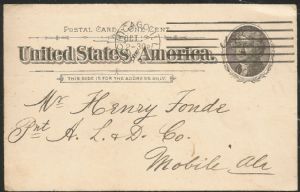 POSTAL CARD - ONE CENT.
United States of America.
THIS SIDE IS FOR THE ADDRESS ONLY.
Mr Henry Fonde
Pnt A. L & D. Co.
Mobile Ala